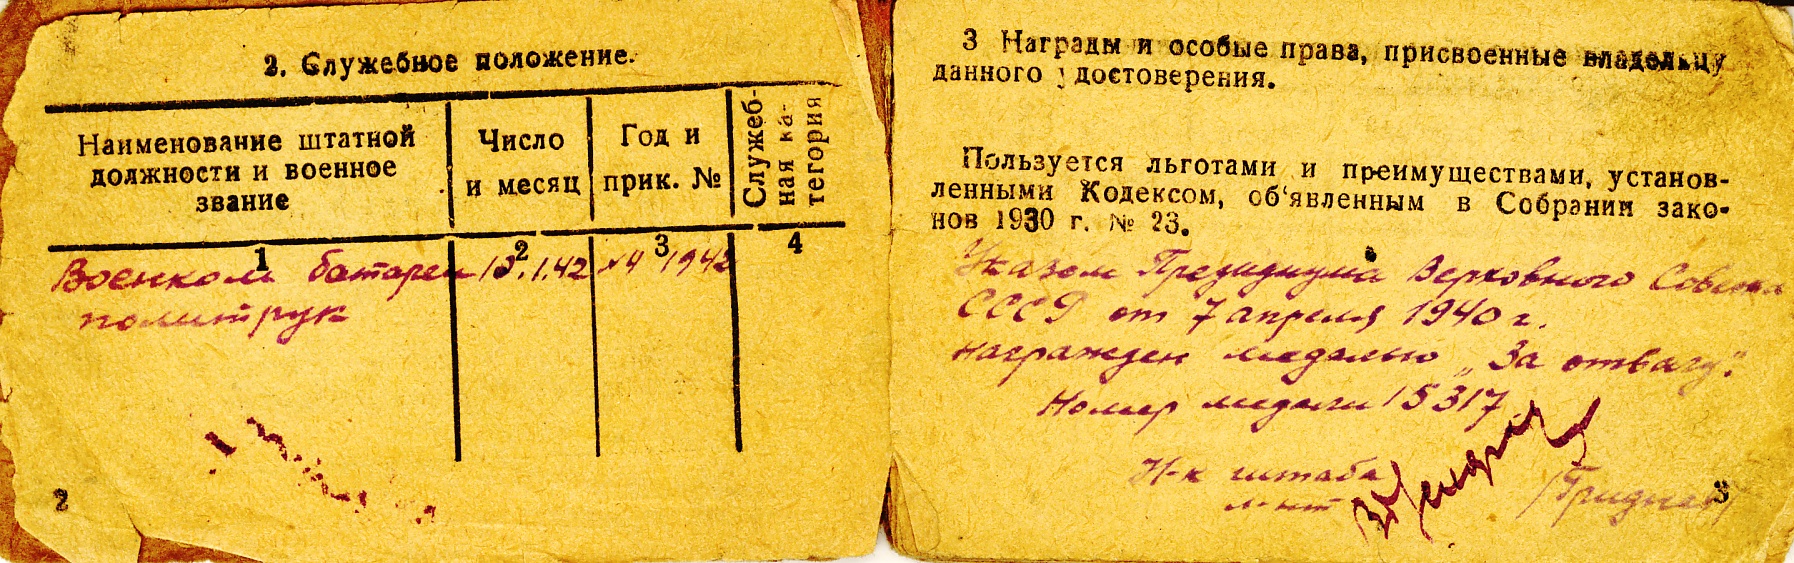 2. Служебное положение.
Наименование штатной
должности и военное
звание
Число
и месяц
Год и
прик. №
Служеб-
ная ка-
тегория
1
2
3
4
Военком батареи 13.1.42 №4 1942
политрук
2
3 Награды и особые права, присвоенные владельцу
данного удостоверения.
Пользуется льготами и преимуществами, установ-
ленными Кодексом, об‘явленным в Собрании зако-
нов 1930 г. № 23.
Указом Президиума Верховного Совета
СССР от 7 апреля 1940 г.
награжден медалью „За отвагу".
Номер медали 15317.
Н-к штаба
3